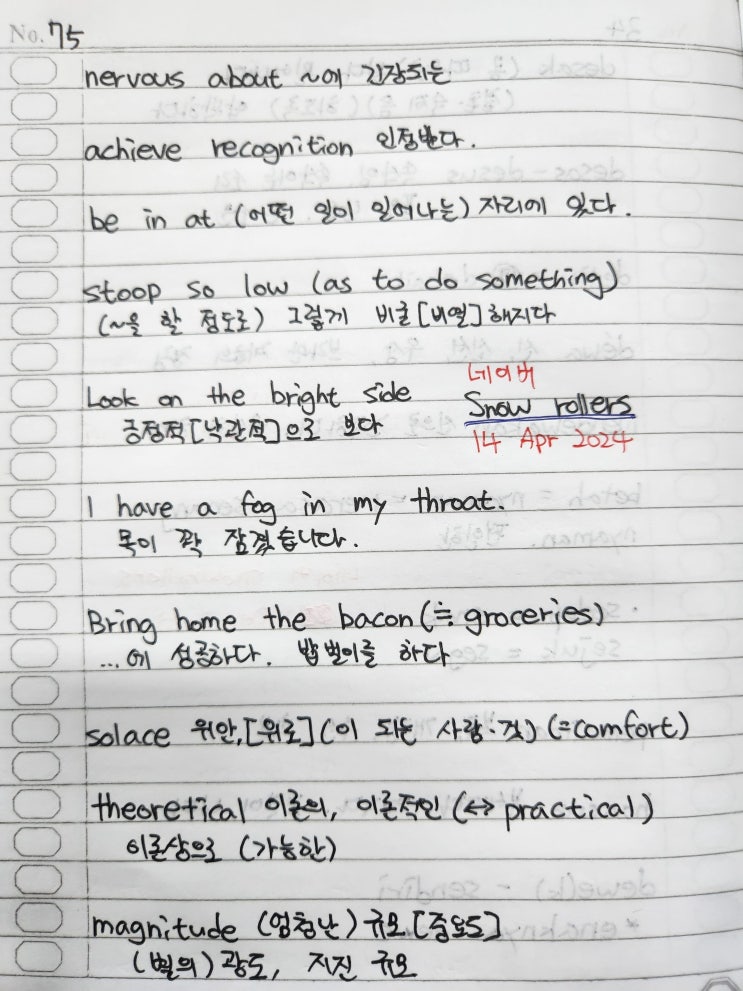 No. 75
nervous about ~에 긴장되는
achieve recognition 인정받다.
be in at (어떤 일이 일어나는) 자리에 있다.
stoop so low (as to do something)
(~을 할 정도로) 그렇게 비굴[비열]해지다
Look on the bright side
긍정적[낙관적]으로 보다
네이버
Snow rollers
14 Apr 2024
I have a fog in my throat.
목이 꽉 잠겼습니다.
Bring home the bacon (≒ groceries)
...에 성공하다. 밥벌이를 하다
solace 위안,[위로] (이 되는 사람·것) (=comfort)
theoretical 이론의, 이론적인 (↔ practical)
이론상으로 (가능한)
magnitude (엄청난) 규모 [중요도]
(별의) 광도, 지진 규모